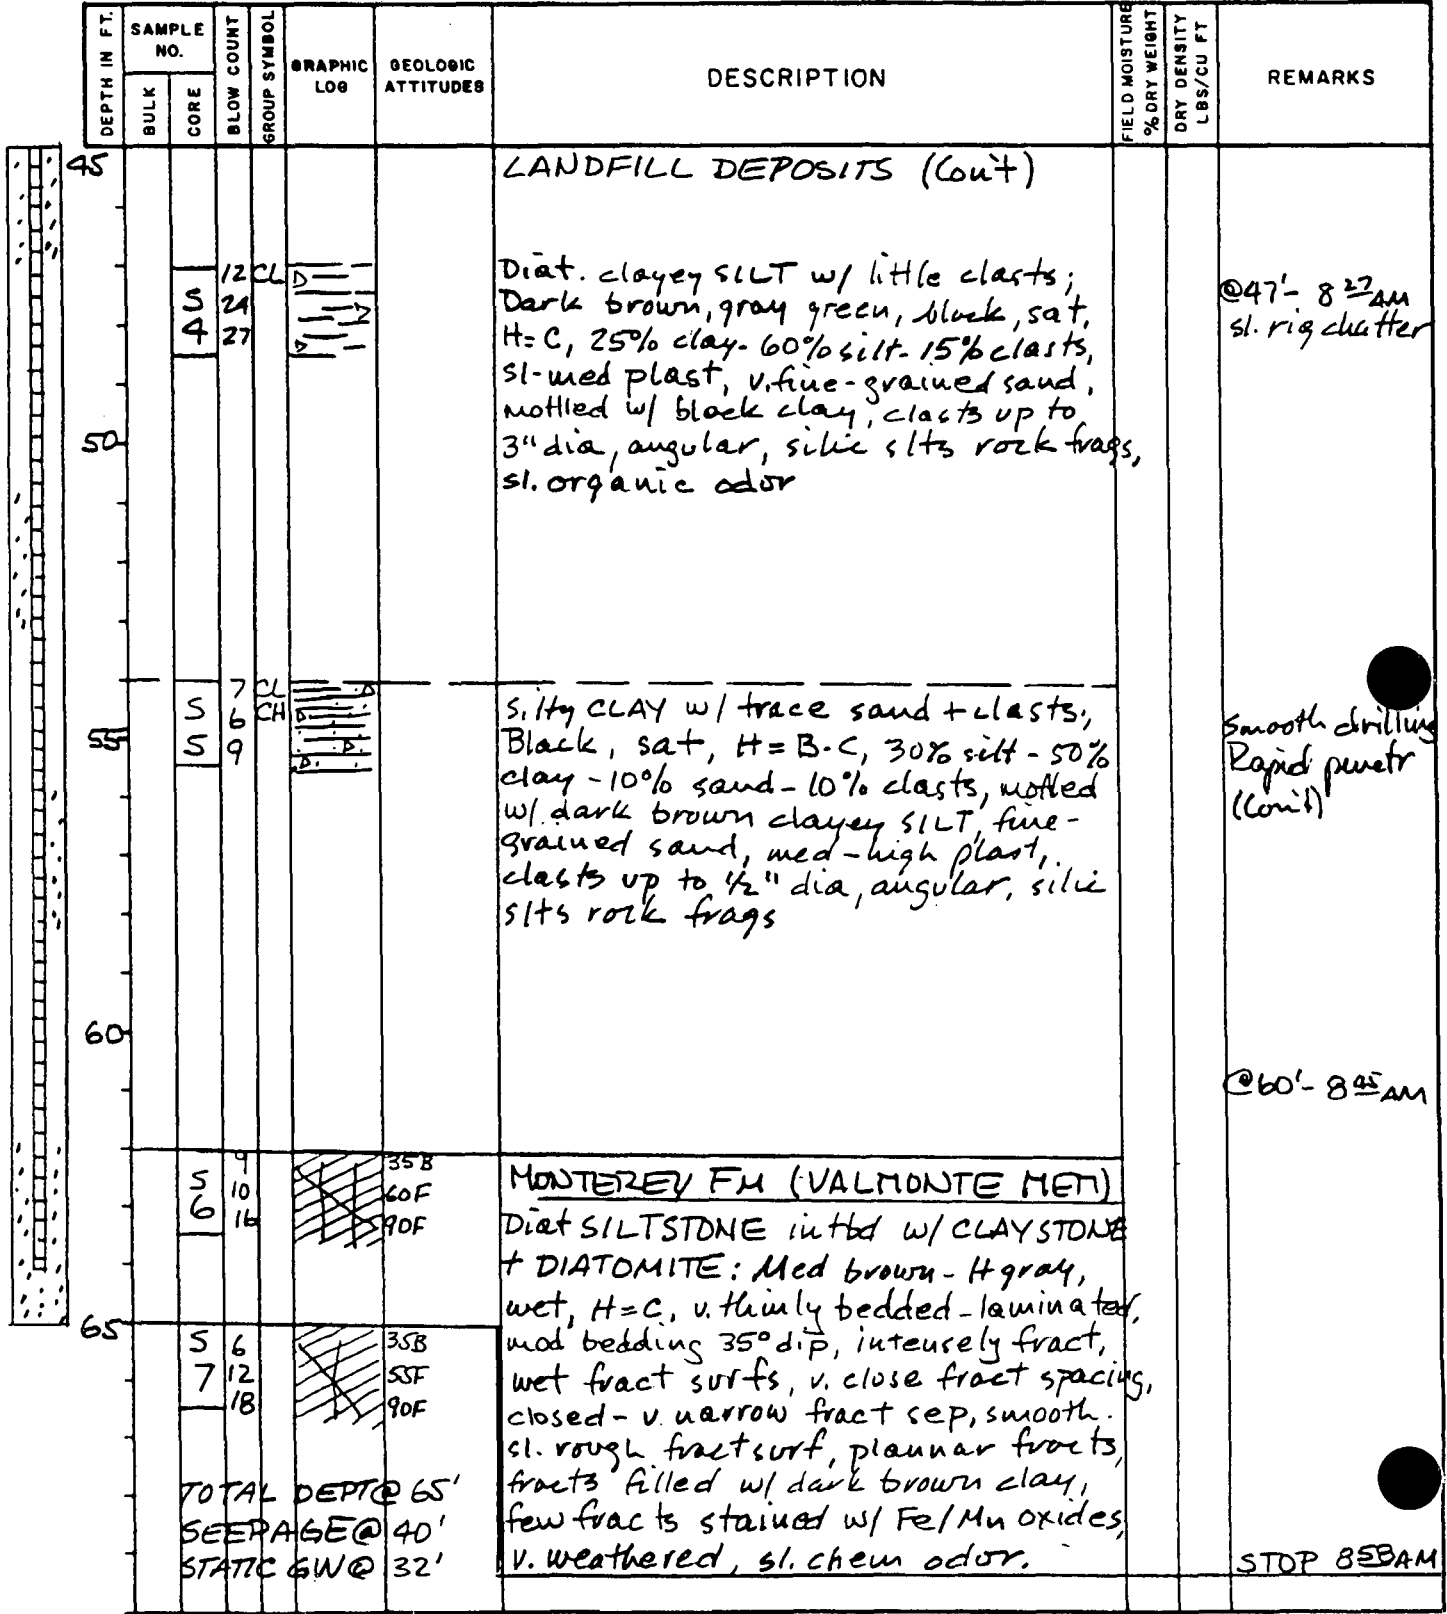 DEPTH IN FT.
SAMPLE NO.
BULK
CORE
BLOW COUNT
GROUP SYMBOL
GRAPHIC LOG
GEOLOGIC ATTITUDES
DESCRIPTION
FIELD MOISTURE % DRY WEIGHT
DRY DENSITY LBS/CU FT
REMARKS
45
LANDFILL DEPOSITS (Con't)
12 CL
S 24
4 27
Diat. clayey SILT w/ little clasts;
Dark brown, gray green, black, sat,
H=C, 25% clay-60% silt-15% clasts,
sl-med plast, v.fine-grained sand,
mottled w/ black clay, clasts up to
3" dia, angular, silic slts rock frags,
sl. organic odor
@47'- 8 27 AM
sl. rig chatter
50
7 CL
S 6 CH
55
S 9
Silty CLAY w/ trace sand + clasts;
Black, sat, H=B-C, 30% silt-50%
clay-10% sand-10% clasts, mottled
w/ dark brown clayey SILT, fine-
grained sand, med-high plast,
clasts up to 1/2" dia, angular, silic
slts rock frags
Smooth drilling
Rapid penetr
(Con't)
60
@60'- 8 45 AM
9 35B
S 10 60F
6 16 90F
MONTEREY FM (VALMONTE MEM)
Diat SILTSTONE intbd w/ CLAYSTONE
+ DIATOMITE: Med brown - lt gray,
wet, H=C, v. thinly bedded-laminated,
65
S 6 35B
7 12 55F
18 90F
mod bedding 35° dip, intensely fract,
wet fract surfs, v. close fract spacing,
closed - v. narrow fract sep, smooth-
sl. rough fract surf, plannar fracts,
fracts filled w/ dark brown clay,
few fracts stained w/ Fe/Mn oxides,
v. weathered, sl. chem odor.
TOTAL DEPT@ 65'
SEEPAGE@ 40'
STATIC GW@ 32'
STOP 8 58 AM